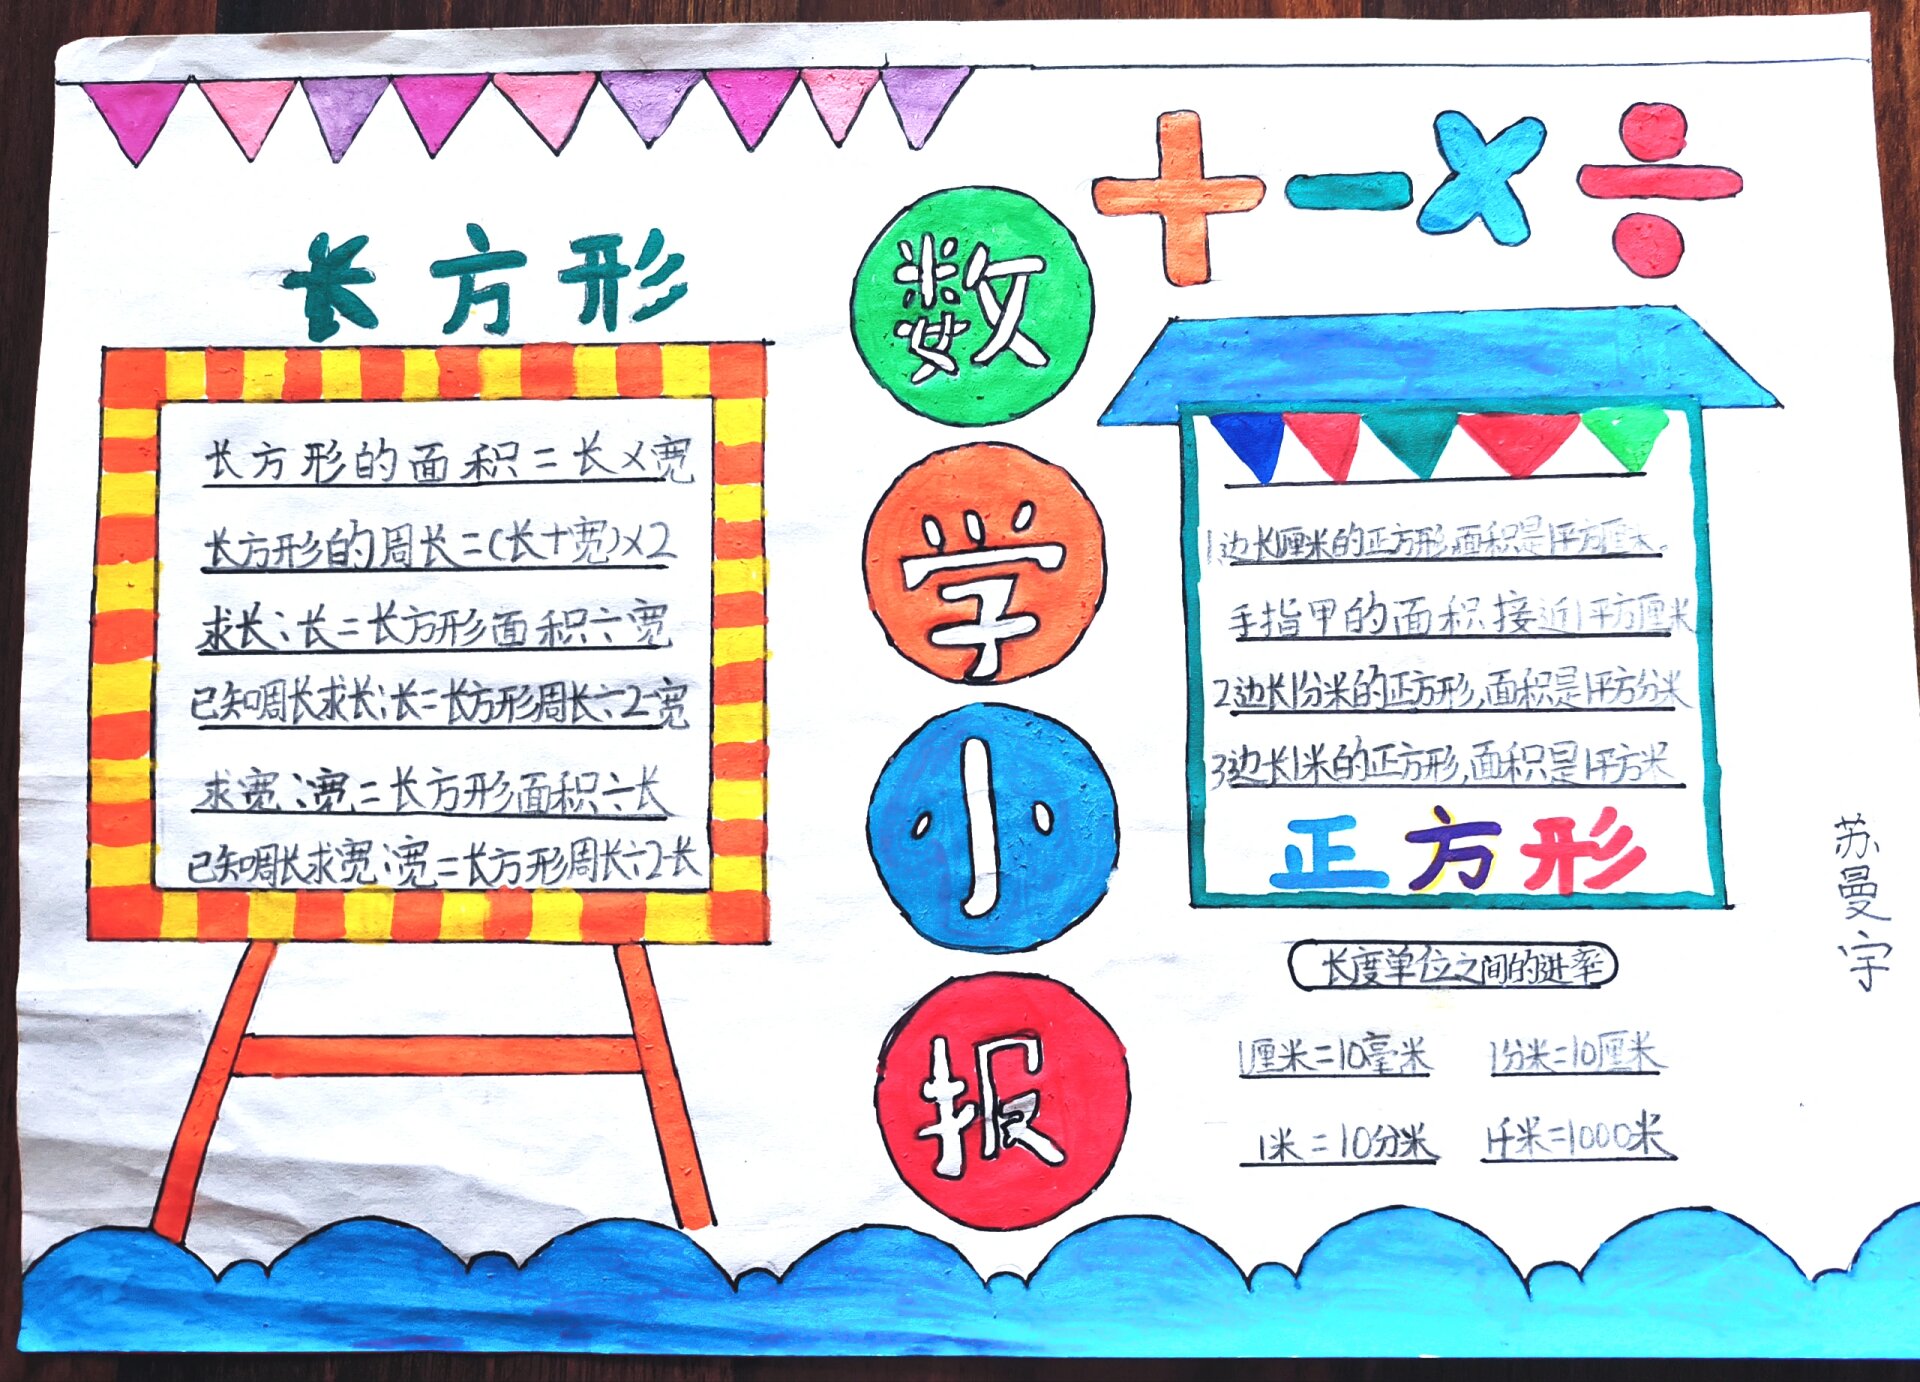 长方形
长方形的面积=长×宽
长方形的周长=(长+宽)×2
求长:长=长方形面积÷宽
已知周长求长:长=长方形周长÷2-宽
求宽:宽=长方形面积÷长
已知周长求宽:宽=长方形周长÷2-长
数
学
小
报
+ - × ÷
1边长1厘米的正方形,面积是1平方厘米。
手指甲的面积接近1平方厘米
2边长1分米的正方形,面积是1平方分米
3边长1米的正方形,面积是1平方米
正方形
长度单位之间的进率
1厘米=10毫米 1分米=10厘米
1米=10分米 1千米=1000米
苏曼宇